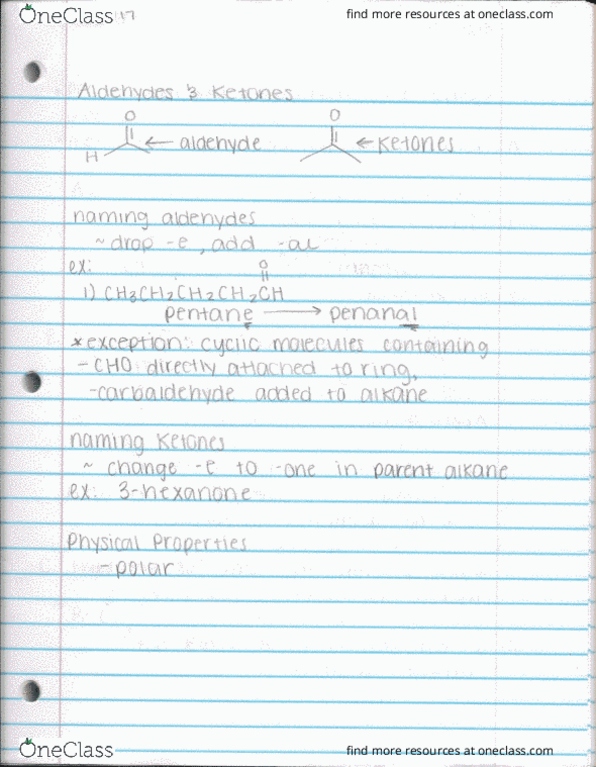 OneClass 17
find more resources at oneclass.com
Aldehydes & Ketones
O O
H ← aldehyde ← Ketones
naming aldehydes
~ drop -e, add -al
ex:
O
1) CH3CH2CH2CH2CH
pentane → penanal
*exception: cyclic molecules containing
-CHO directly attached to ring,
-carbaldehyde added to alkane
naming Ketones
~ change -e to -one in parent alkane
ex: 3-hexanone
Physical Properties
- polar
OneClass
find more resources at oneclass.com